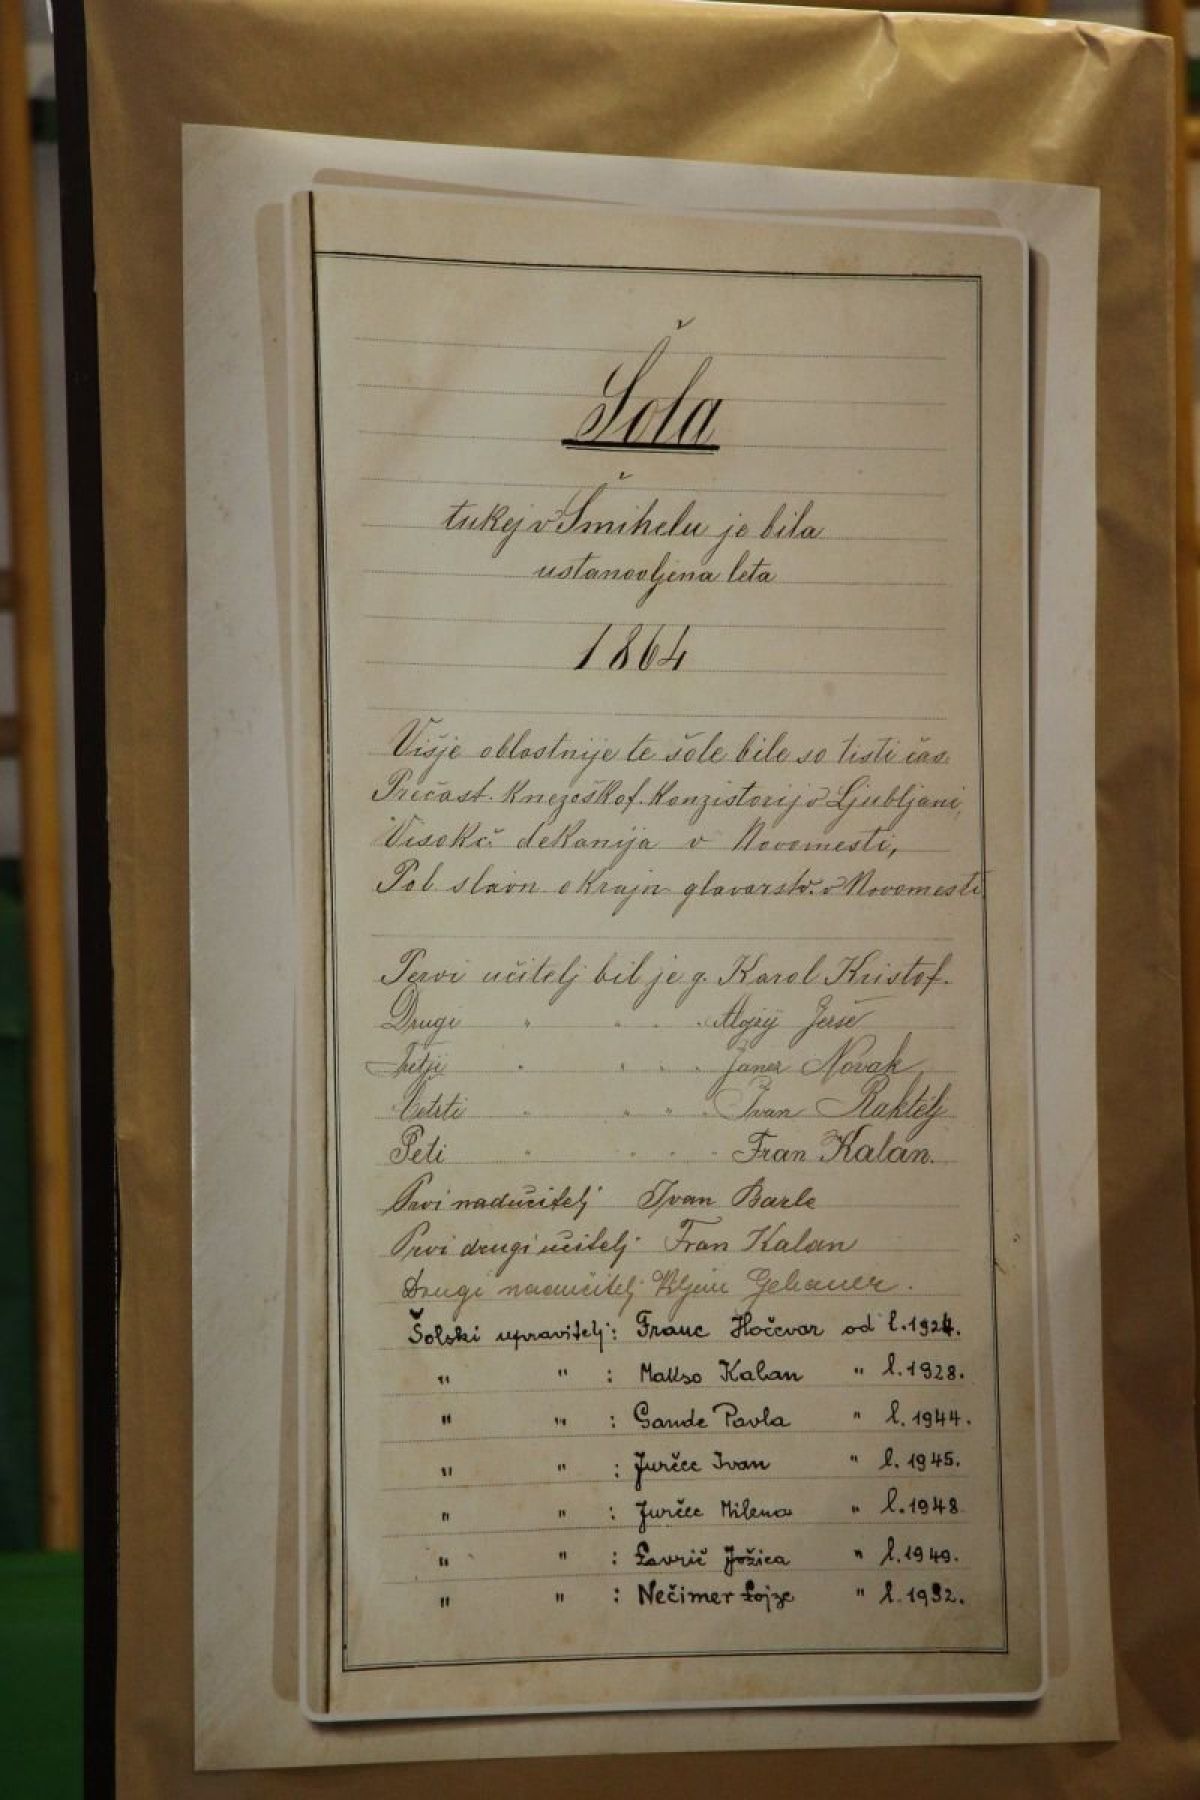 Šola
tukej v Šmihelu je bila
ustanovljena leta
1864
Višje oblastnije te šole bile so tisti čas
Prečast. Knezoškof. Konzistorij v Ljubljani,
Visokč. dekanija v Novomesti,
Pol. slavn. okrajn. glavarstv. v Novomesti
Pervi učitelj bil je g. Karol Kristof.
Drugi " " " " Alojzij Jerše
Tretji " " " " Janez Novak
Četrti " " " " Ivan Raktelj
Peti " " " " Fran Kalan.
Prvi nadučitelj Ivan Barle
Prvi drugi učitelj Fran Kalan
Drugi nadučitelj Viljem Gebauer.
Šolski upravitelj: Franc Hočevar od l. 1924.
" " : Makso Kalan " l. 1928.
" " : Gande Pavla " l. 1944.
" " : Jurčec Ivan " l. 1945.
" " : Jurčec Milena " l. 1948
" " : Lavrič Jožica " l. 1949.
" " : Nečimer Lojze " l. 1952.